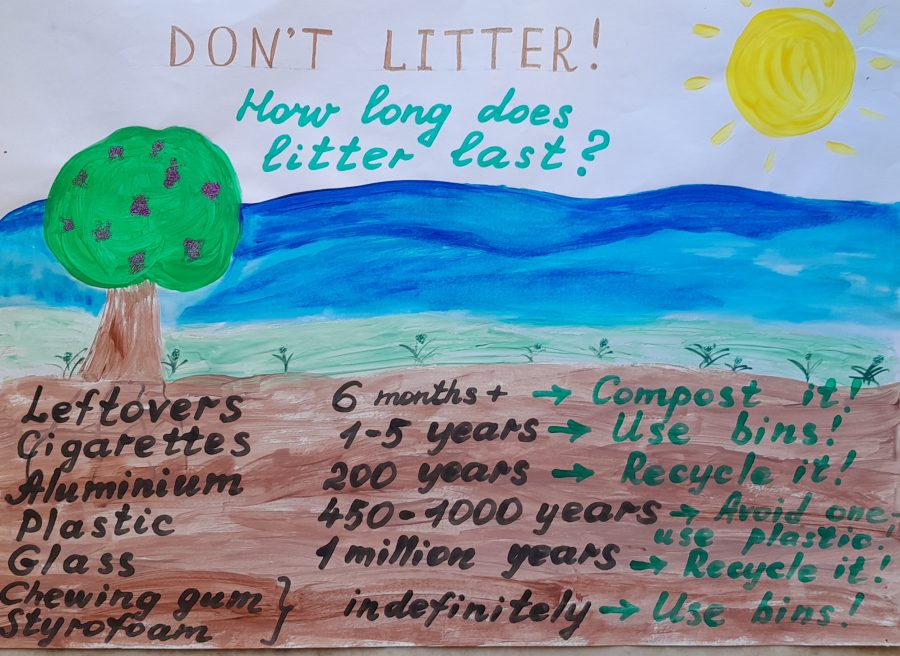 DON'T LITTER!
How long does
litter last?
Leftovers 6 months+ → Compost it!
Cigarettes 1-5 years → Use bins!
Aluminium 200 years → Recycle it!
Plastic 450-1000 years → Avoid one-
use plastic!
Glass 1 million years → Recycle it!
Chewing gum
Styrofoam } indefinitely → Use bins!